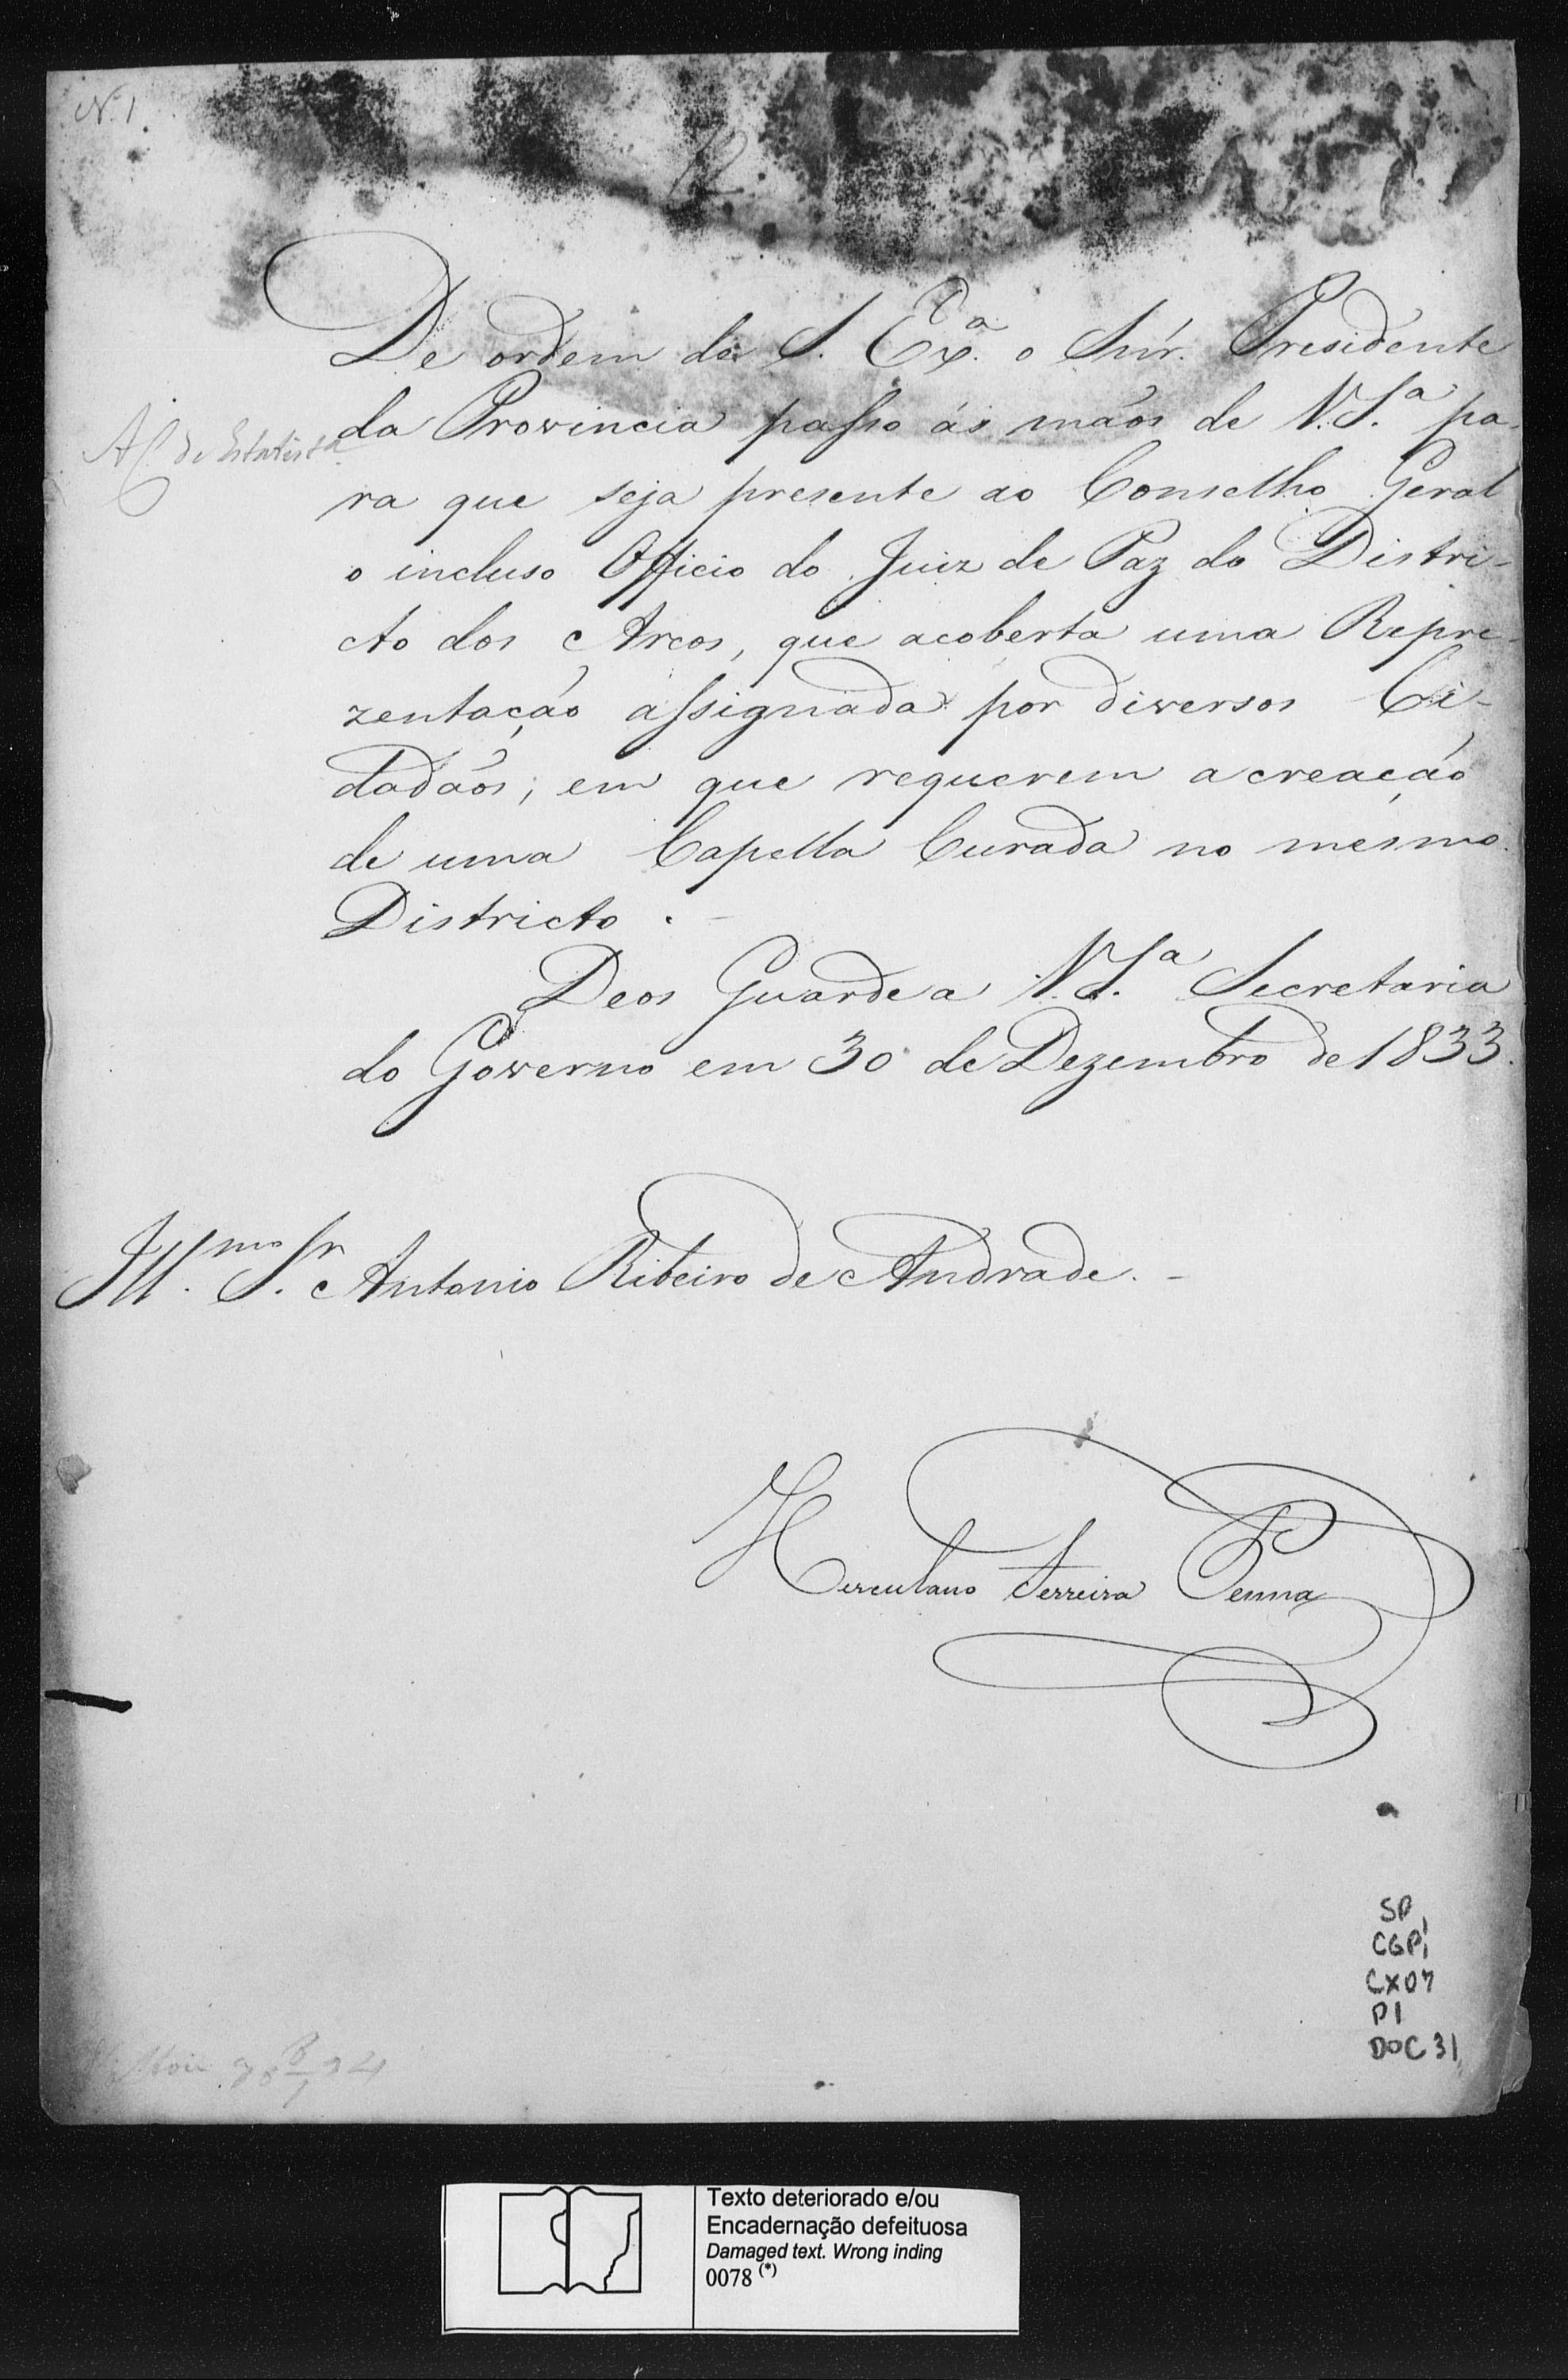 N. 1.
12
De ordem de S. Exª. o Snr. Presidente
da Provincia passo ás mãos de V. S.ª pa-
ra que seja presente ao Conselho Geral
o incluso Officio do Juiz de Paz do Distri-
cto dos Arcos, que acoberta uma Repre-
zentação assignada por diversos Ci-
dadãos; em que requerem a creação
de uma Capella Curada no mesmo
Districto. -
Deos Guarde a V. S.ª Secretaria
do Governo em 30 de Dezembro de 1833.
A C. de Estatist.ª
Ill.mo Sr. Antonio Ribeiro de Andrade. -
Herculano Ferreira Penna
SP
CGP1
CX07
P1
DOC 31
Texto deteriorado e/ou
Encadernação defeituosa
Damaged text. Wrong inding
0078 (*)